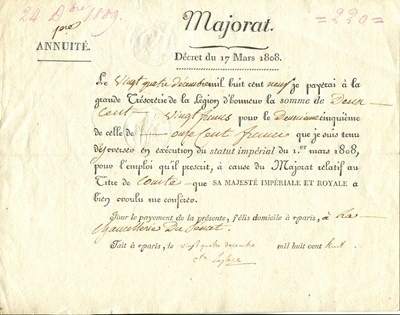 24 Xbre 1809.
1ere
ANNUITÉ.
Majorat.
=220=
Décret du 17 Mars 1808.
Le Vingt quatre décembre mil huit cent neuf je payerai à la
grande Trésorerie de la Légion d'honneur la somme de Deux
Cent Vingt francs pour le Deuxieme cinquième
de celle de onze Cent francs que je suis tenu
d'y verser en exécution du statut impérial du 1.er mars 1808,
pour l'emploi qu'il prescrit, à cause du Majorat relatif au
Titre de Comte que SA MAJESTÉ IMPÉRIALE ET ROYALE a
bien voulu me conférer.
Pour le payement de la présente, j'élis domicile à Paris, à La
Chancellerie Du Senat.
Fait à Paris, le vingt quatre decembre mil huit cent huit